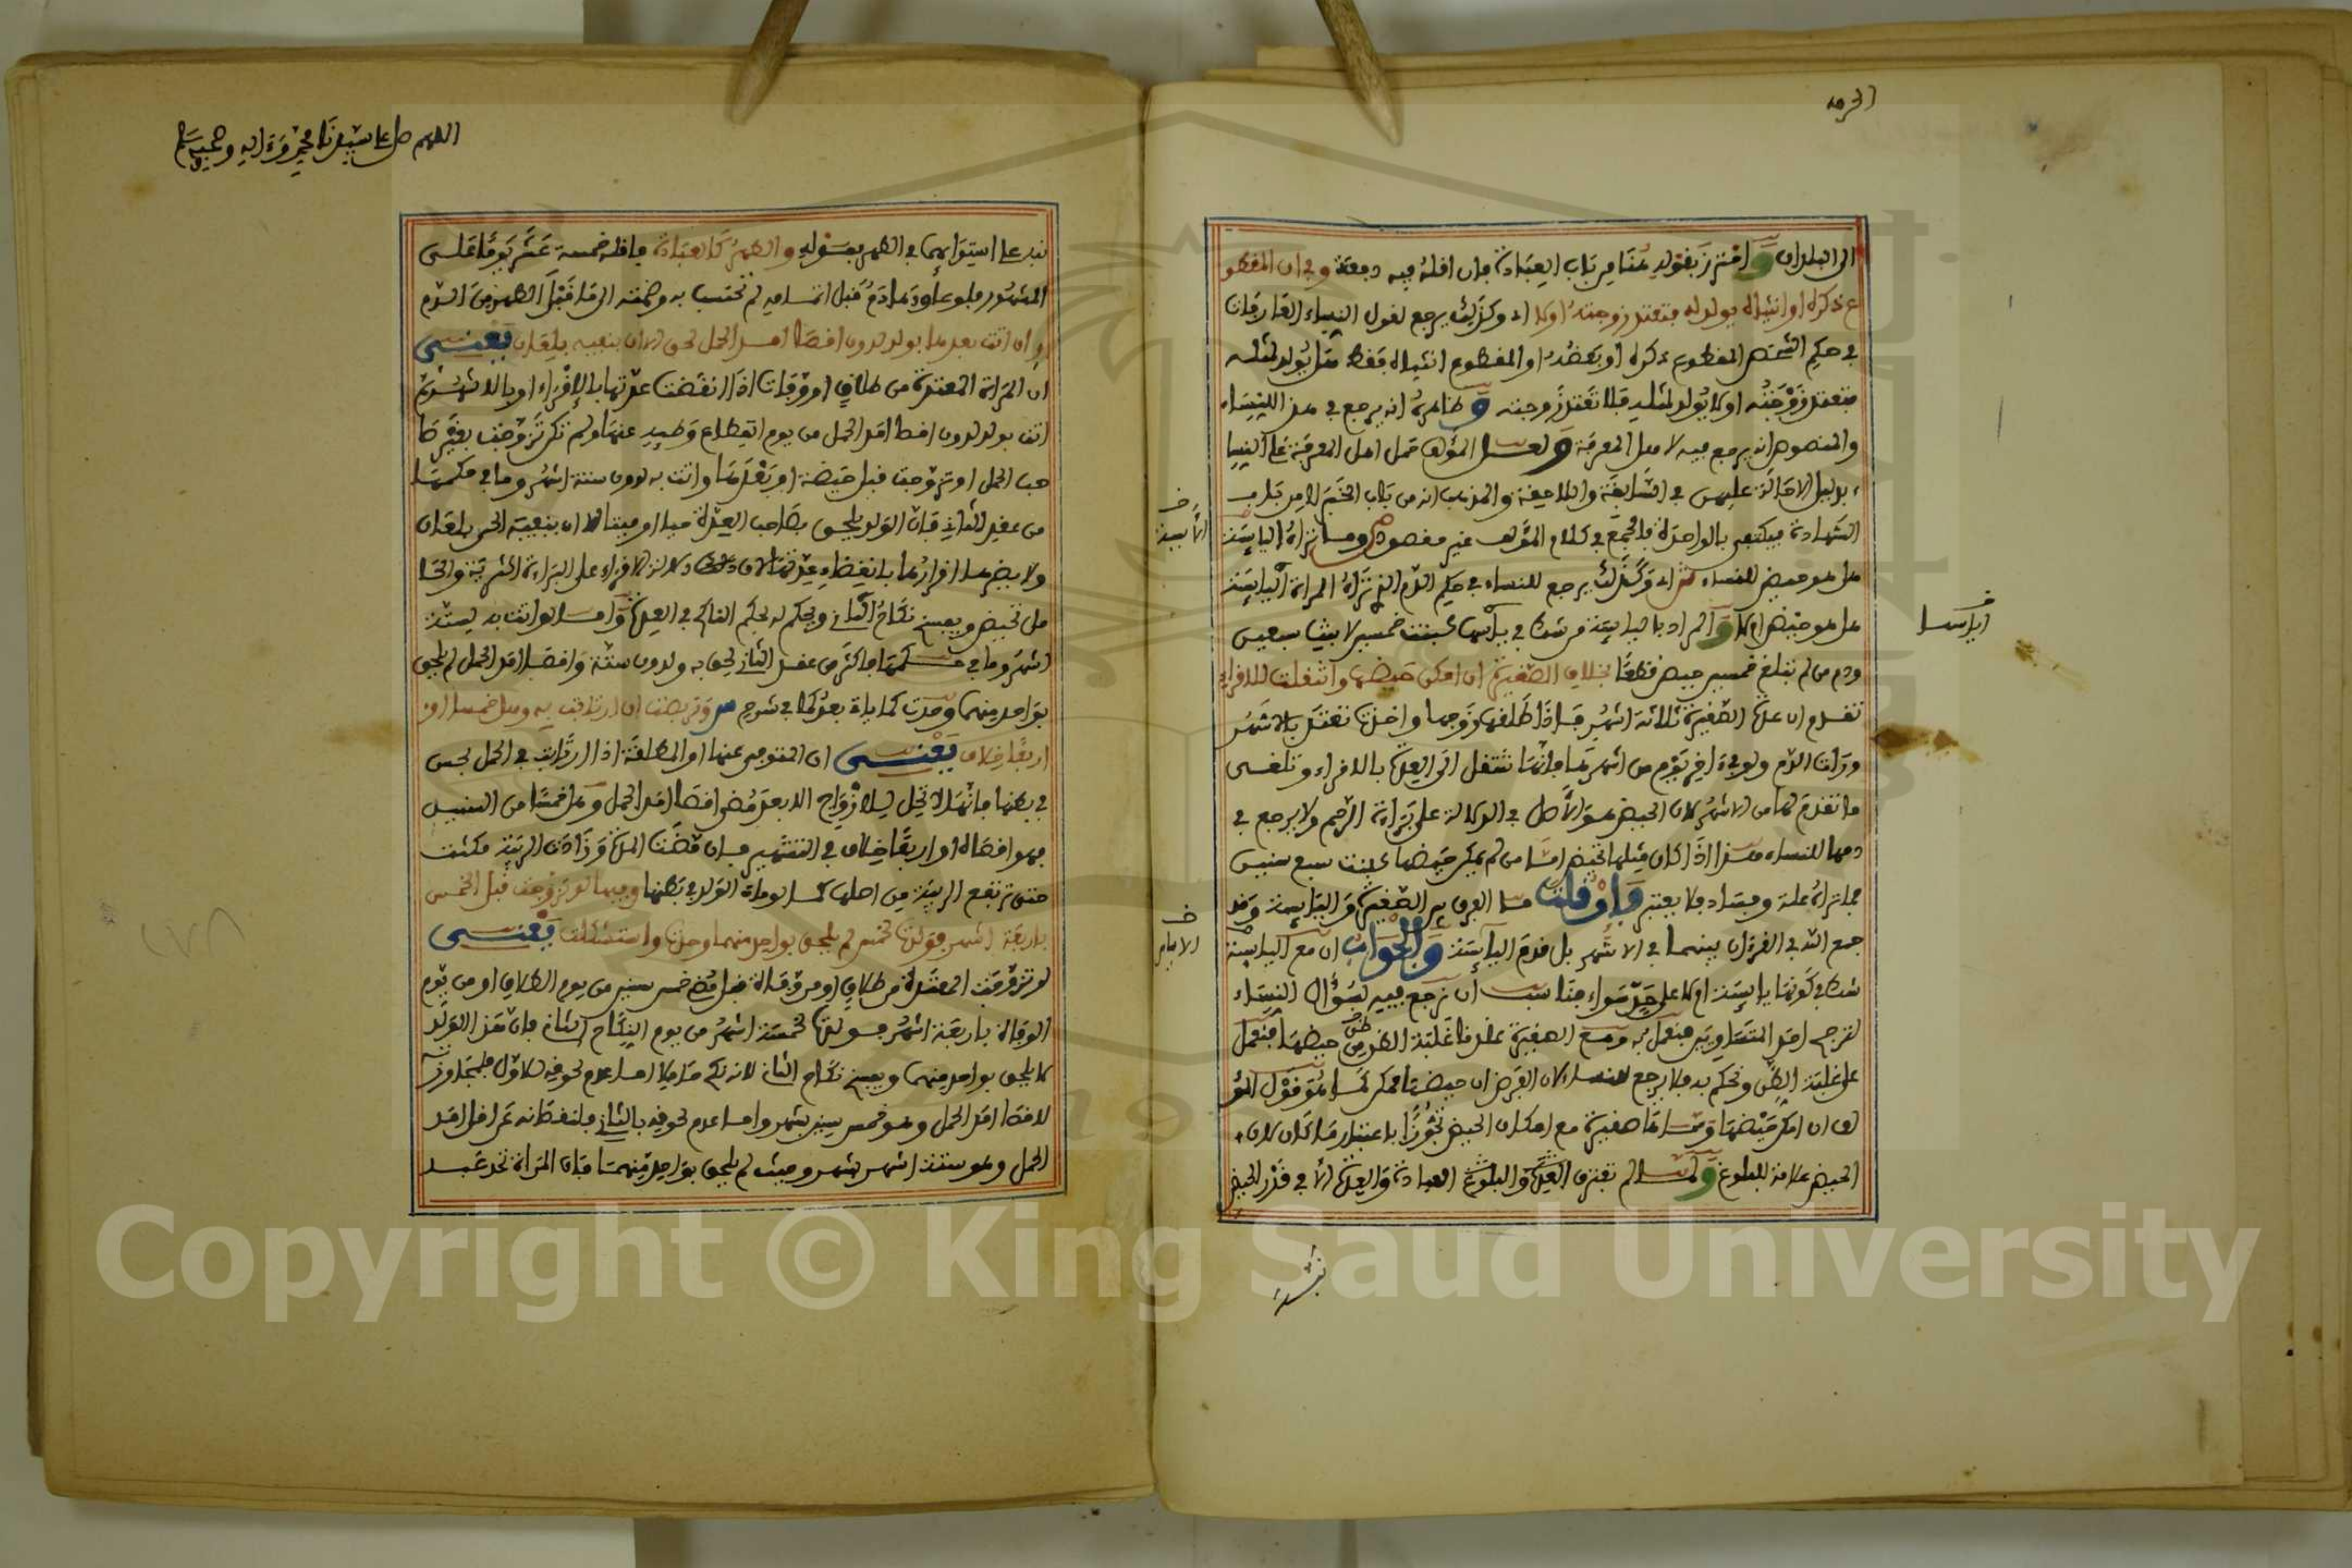 الى البلدان واحترز بقوله هنا من باب العبادة فان اقله فيه دفعة وفي ان المقطوع
ذكره او انثياه يولد له فتعتد زوجته اولا اي وكذلك يرجع لقول النساء العارفات
في حكم الشخص المقطوع ذكره او بعضه او المقطوع انثياه فقط هل يولد لمثله
فتعتد زوجته او لا يولد لمثله فلا تعتد زوجته وظاهره انه يرجع في هذا للنساء
والمنصوص انه يرجع فيه لاهل المعرفة ولعل المؤلف حمل اهل المعرفة على النساء
بدليل الاحالة عليهن في السابقة واللاحقة والمذهب انه من باب الخبر لا من باب
الشهادة فيكتفى بالواحدة فالجمع في كلام المؤلف غير مقصود وما تراه اليائسة
هل هو حيض للنساء اي وكذلك يرجع للنساء في حكم الدم الذي تراه المراة اليائسة
هل هو حيض ام لا والمراد باليائسة من شك في يأسها كبنت خمسين لا بنت سبعين
ودم من لم تبلغ خمسين حيض قطعا بخلاف الصغيرة ان امكن حيضها وانتقلت للاقراء
تقدم ان عدة الصغيرة ثلاثة اشهر فاذا طلقها زوجها واخذت تعتد بالاشهر
ورات الدم ولو في اخر يوم من اشهرها فانها تنتقل الى العدة بالاقراء وتلغى
ما تقدم لها من الاشهر لان الحيض هو الاصل في الدلالة على براءة الرحم ولا يرجع في
دمها للنساء هذا اذا كان مثلها تحيض اما من لم يمكن حيضها كبنت سبع سنين
فما تراه علة وفساد فلا يعتبر وان قلت ما الفرق بين الصغيرة واليائسة وقد
جمع الله في القران بينهما في الاشهر بل قدم اليائسة والجواب ان مع اليائسة
شكا في كونها يائسة اولا على حد سواء فناسب ان نرجع فيه لسؤال النساء
لترجح احد المتساويين فيعمل به ومع الصغيرة عندنا غلبة الظن حيضها فيعمل
على غلبة الظن ونحكم به فلا يرجع للنساء لان الفرض ان حيضها ممكن كما هو قول المؤ
لف ان امكن حيضها وسماها صغيرة مع امكان الحيض تجوزا باعتبار ما كان لان
الحيض علامة للبلوغ ولما لم تفترق العدة والبلوغ العبادة والعدة الا في قدر الحيض
الأيسة
اياسها
الامام
نبه
اللهم صل على سيدنا محمد وءاله وصحبه وسلم
نبه على استوايهما في الطهر بقوله والطهر كالعبادة فاقله خمسة عشر يوما على
المشهور فلو عاودها دم قبل اتمامه لم تحتسب به وضمته الى ما قبل الطهر من الدم
وان اتت بعدها بولد لدون اقصا امد الحمل لحق الا ان ينفيه بلعان يعني
ان المراة المعتدة من طلاق او وفاة اذا انقضت عدتها بالاقراء او بالاشهر ثم
اتت بولد لدون اقصا امد الحمل من يوم انقطاع وطيه عنها ولم تكن تزوجت بغير صا
حب الحمل او تزوجت قبل حيضة او بعدها واتت به لدون ستة اشهر وما في حكمها
من عقد الثاني فان الولد يلحق بصاحب العدة حيا او ميتا الا ان ينفيه الحي بلعان
ولا يضرها اقرارها بانقضاء عدتها لان دلالة الاقراء على البراءة اكثرية والحا
مل تحيض ويفسخ نكاح الثاني ويحكم له بحكم الناكح في العدة واما لو اتت به لستة
اشهر وما في حكمها فاكثر من عقد الثاني لحق به ولدون ستة واقصا امد الحمل لم يلحق
بواحد منهما وحدت كما ياتي بعد كما في شرح وتربصت ان ارتابت به وهل خمسا او
اربعا خلاف يعني ان المتوفى عنها او المطلقة اذا ارتابت في الحمل بحس
في بطنها فانها لا تحل للازواج الا بعد مضي اقصا امد الحمل وهل خمسا من السنين
فهو اقصاه او اربعا خلاف في التشهير فان مضت المدة وزادت الريبة مكثت
حتى ترتفع الريبة من اصلها كما لو مات الولد في بطنها وفيها لو تزوجت قبل الخمس
باربعة اشهر فولدت لخمس لم يلحق بواحد منهما وحدت واستشكلت يعني
لو تزوجت المعتدة من طلاق او من وفاة قبل مضي خمس سنين من يوم الطلاق او من يوم
الوفاة باربعة اشهر فولدت لخمسة اشهر من يوم النكاح الثاني فان هذا الولد
لا يلحق بواحد منهما ويفسخ نكاح الثاني لانه نكح حاملا اما عدم لحوقه للاول فلمجاوزته
لاقصا امد الحمل وهو خمس سنين بشهر واما عدم لحوقه بالثاني فلنقصانه عن اقل امد
الحمل وهو ستة اشهر بشهر وحيث لم يلحق بواحد منهما فان المراة تحد عند
Copyright © King Saud University